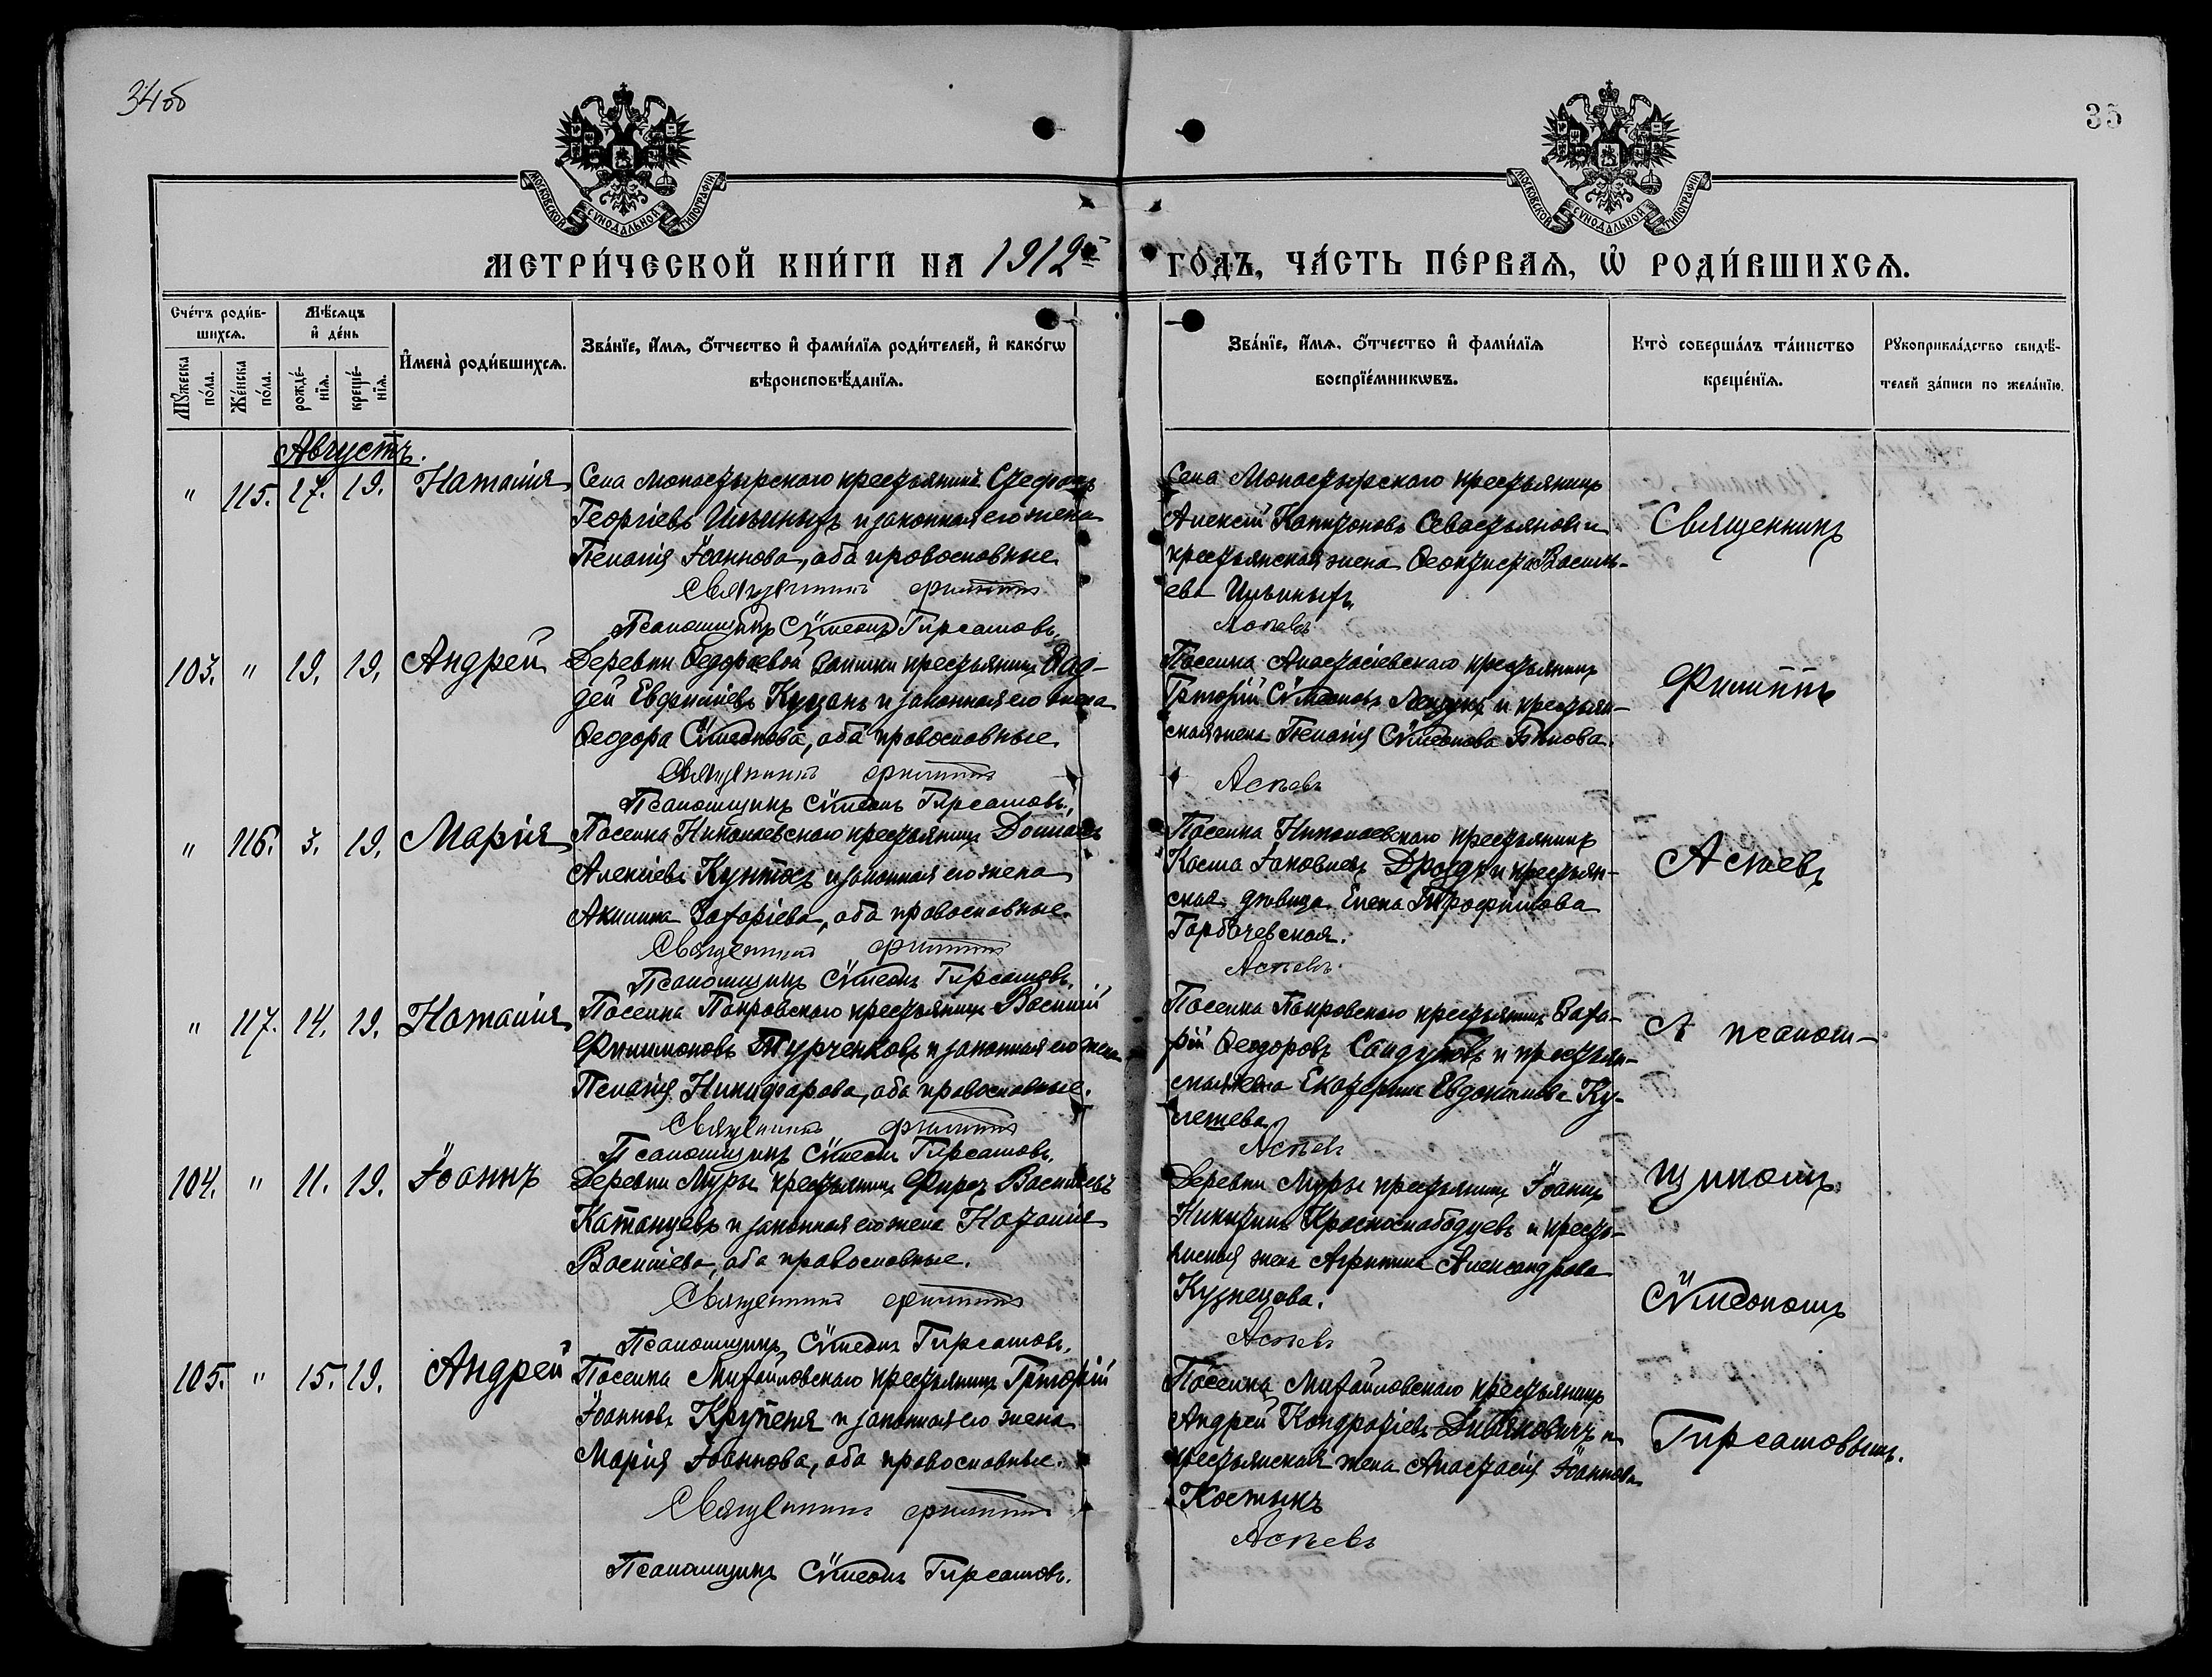 34об
35
МОСКОВСКОЙ СѴНОДАЛЬНОЙ ТИПОГРАФІИ
МОСКОВСКОЙ СѴНОДАЛЬНОЙ ТИПОГРАФІИ
МЕТРИ́ЧЕСКОЙ КНИ́ГИ НА 1912й ГО́ДЪ, ЧА́СТЬ ПЕ́РВАѦ, Ѡ҆ РОДИ́ВШИХСѦ.
Сче́тъ роди́в-
шихсѧ.
Мꙋ́жеска по́ла.
Же́нска по́ла.
Мѣ́сѧцъ
и҆ де́нь
рожде́-нїѧ.
креще́-нїѧ.
И҆мена̀ роди́вшихсѧ.
Зва́нїе, и҆́мѧ, ѻ҆́тчество и҆ фами́лїѧ роди́телей, и҆ како́гѡ
вѣроисповѣ́данїѧ.
Зва́нїе, и҆́мѧ, ѻ҆́тчество и҆ фами́лїѧ
воспрїе́мникѡвъ.
Кто̀ соверша́лъ та́инство
креще́нїѧ.
Рꙋкоприкла́дство свидѣ́-
телей за́писи по жела́нїю.
Августъ.
" 115. 17. 19. Наталія
Села Монастырскаго крестьянинъ Стефанъ
Георгіевъ Ильиныхъ и законная его жена
Пелагія Іоаннова, оба православные.
Священникъ Филиппъ
Псаломщикъ Сѵмеонъ Гирсамовъ.
Села Монастырскаго крестьянинъ
Алексій Капитоновъ Севастьяновъ и
крестьянская жена Ѳеоктиста Василь-
ева Ильиныхъ.
Аспевъ
103. " 19. 19. Андрей
Деревни крестьянинъ Ѳад-
дей Евфиміевъ Куцанъ и законная его жена
Ѳеодора Сѵмеонова, оба православные.
Священникъ Филиппъ
Псаломщикъ Сѵмеонъ Гирсамовъ.
Поселка Анастасіевскаго крестьянинъ
Григорій Сѵмеоновъ и крестьян-
ская жена Пелагія Сѵмеонова Бѣлова.
Аспевъ
" 116. 3. 19. Марія
Поселка Николаевскаго крестьянинъ
Алексіевъ и законная его жена
Акилина Захаріева, оба православные.
Священникъ Филиппъ
Псаломщикъ Сѵмеонъ Гирсамовъ.
Поселка Николаевскаго крестьянинъ
Косма Іаковлевъ Дроздъ и крестьян-
ская дѣвица Елена Трофимова
Горбачевская.
Аспевъ
" 117. 14. 19. Наталія
Поселка Покровскаго крестьянинъ Василій
Филимоновъ Турченковъ и законная его жена
Пелагія Никифорова, оба православные.
Священникъ Филиппъ
Псаломщикъ Сѵмеонъ Гирсамовъ.
Поселка Покровскаго крестьянинъ Заха-
рій Ѳеодоровъ и крестьян-
ская жена Екатерина Евдокимова Ку-
лешева.
Аспевъ
104. " 11. 19. Іоаннъ
Деревни Муры крестьянинъ Фирсъ Васильевъ
Катанцевъ и законная его жена Наталія
Васильева, оба православные.
Священникъ Филиппъ
Псаломщикъ Сѵмеонъ Гирсамовъ.
Деревни Муры крестьянинъ Іоаннъ
Никитинъ Краснослободцевъ и кресть-
янская жена Агрипина Александрова
Кузнецова.
Аспевъ
105. " 15. 19. Андрей
Поселка Михайловскаго крестьянинъ Григорій
Іоанновъ Крупеня и законная его жена
Марія Іоаннова, оба православные.
Священникъ Филиппъ
Псаломщикъ Сѵмеонъ Гирсамовъ.
Поселка Михайловскаго крестьянинъ
Андрей Кондратіевъ и
крестьянская жена Анастасія Іоаннова
Костюкъ
Аспевъ
Священникъ
Филиппъ
Аспевъ
съ псалом-
щикомъ
Сѵмеономъ
Гирсамовымъ.